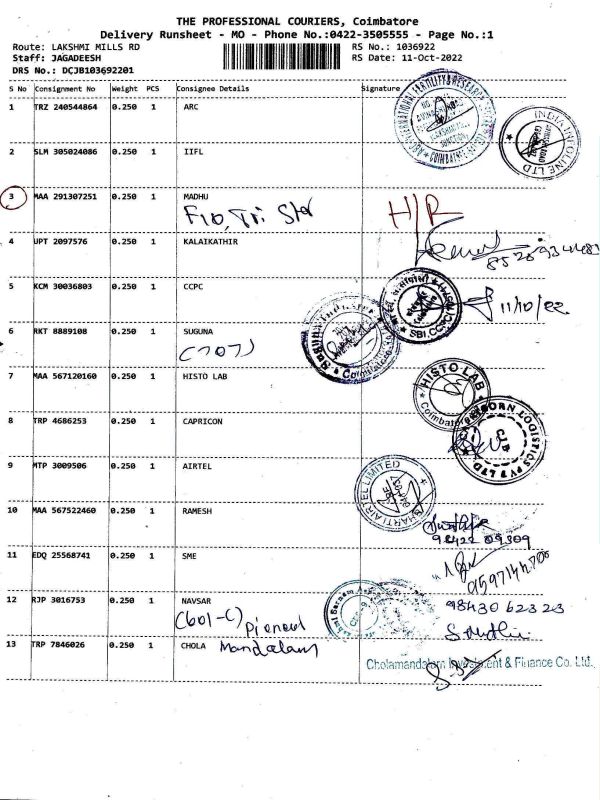 THE PROFESSIONAL COURIERS, Coimbatore
Delivery Runsheet - MO - Phone No.:0422-3505555 - Page No.:1
Route: LAKSHMI MILLS RD
RS No.: 1036922
Staff: JAGADEESH
RS Date: 11-Oct-2022
DRS No.: DCJB103692201
S No Consignment No Weight PCS Consignee Details Signature
1 TRZ 240544864 0.250 1 ARC
2 SLM 305024086 0.250 1 IIFL
INDIA INFOLINE LTD
3 MAA 291307251 0.250 1 MADHU
F10, Tri Star H/R
4 UPT 2097576 0.250 1 KALAIKATHIR
5 KCM 30036803 0.250 1 CCPC
SBI, CCPC
11/10/22
6 RKT 8889108 0.250 1 SUGUNA
(707)
7 MAA 567120160 0.250 1 HISTO LAB
HISTO LAB
Coimbatore
8 TRP 4686253 0.250 1 CAPRICON
LOGISTICS PVT LTD
CJB
9 MTP 3009506 0.250 1 AIRTEL
BHARTI AIRTEL LIMITED
10 MAA 567522460 0.250 1 RAMESH
98422 09309
11 EDQ 25568741 0.250 1 SME
12 RJP 3016753 0.250 1 NAVSAR
98430 62323
(601-C) Pioneer
13 TRP 7846026 0.250 1 CHOLA Mandalam
Cholamandalam Investment & Finance Co. Ltd.